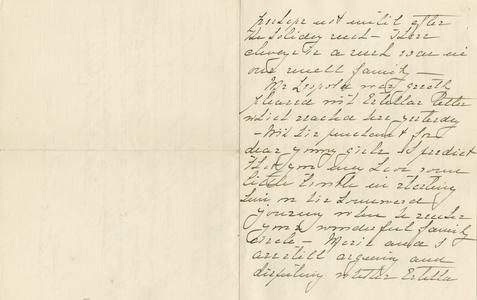 perhaps not until after
the holiday rush - There
always is a rush even in
our small family —
Mr Leopold was greatly
pleased with Estellas letter
which reached here yesterday
- With his penchant for
dear young girls I predict
that you may have some
little trouble in starting
him on his homeward
journey when he reaches
your wonderful family
circle - Marie and I
are still arguing and
disputing whether Estella